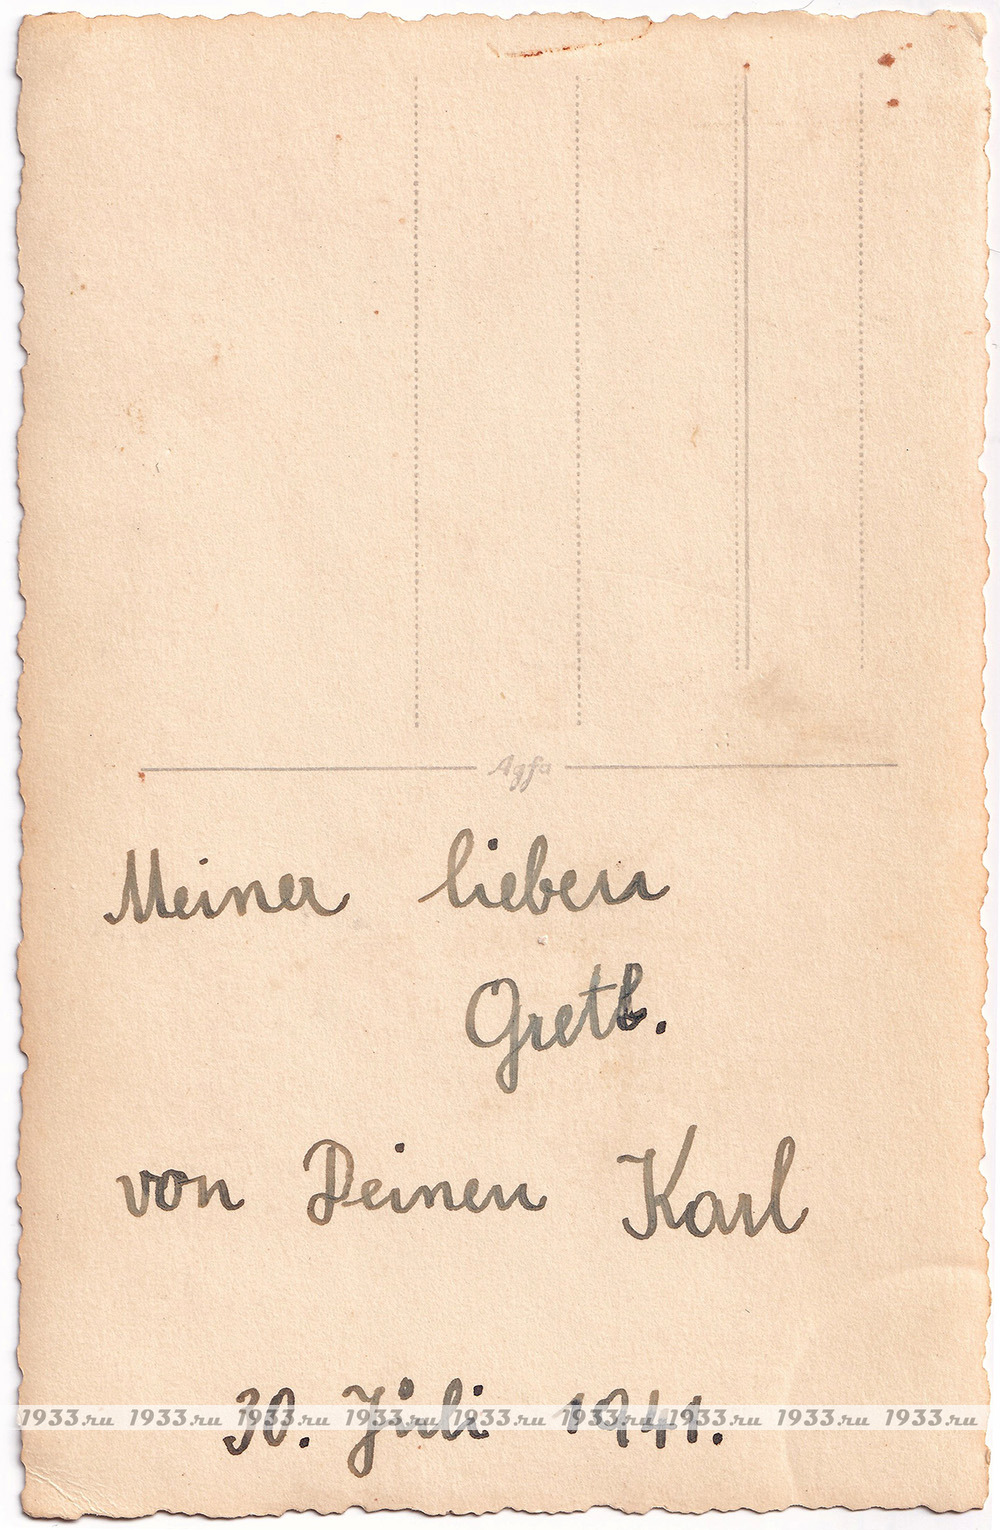 Agfa
Meiner lieben
Gretl.
von Deinen Karl
30. Juli 1941.
1933.ru 1933.ru 1933.ru 1933.ru 1933.ru 1933.ru 1933.ru 1933.ru 1933.ru